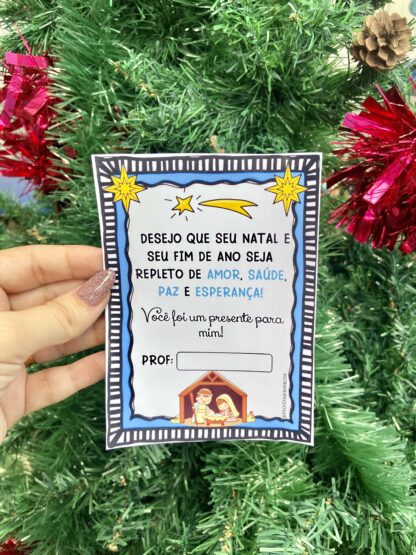 DESEJO QUE SEU NATAL E
SEU FIM DE ANO SEJA
REPLETO DE AMOR, SAÚDE,
PAZ E ESPERANÇA!
Você foi um presente para
mim!
PROF: